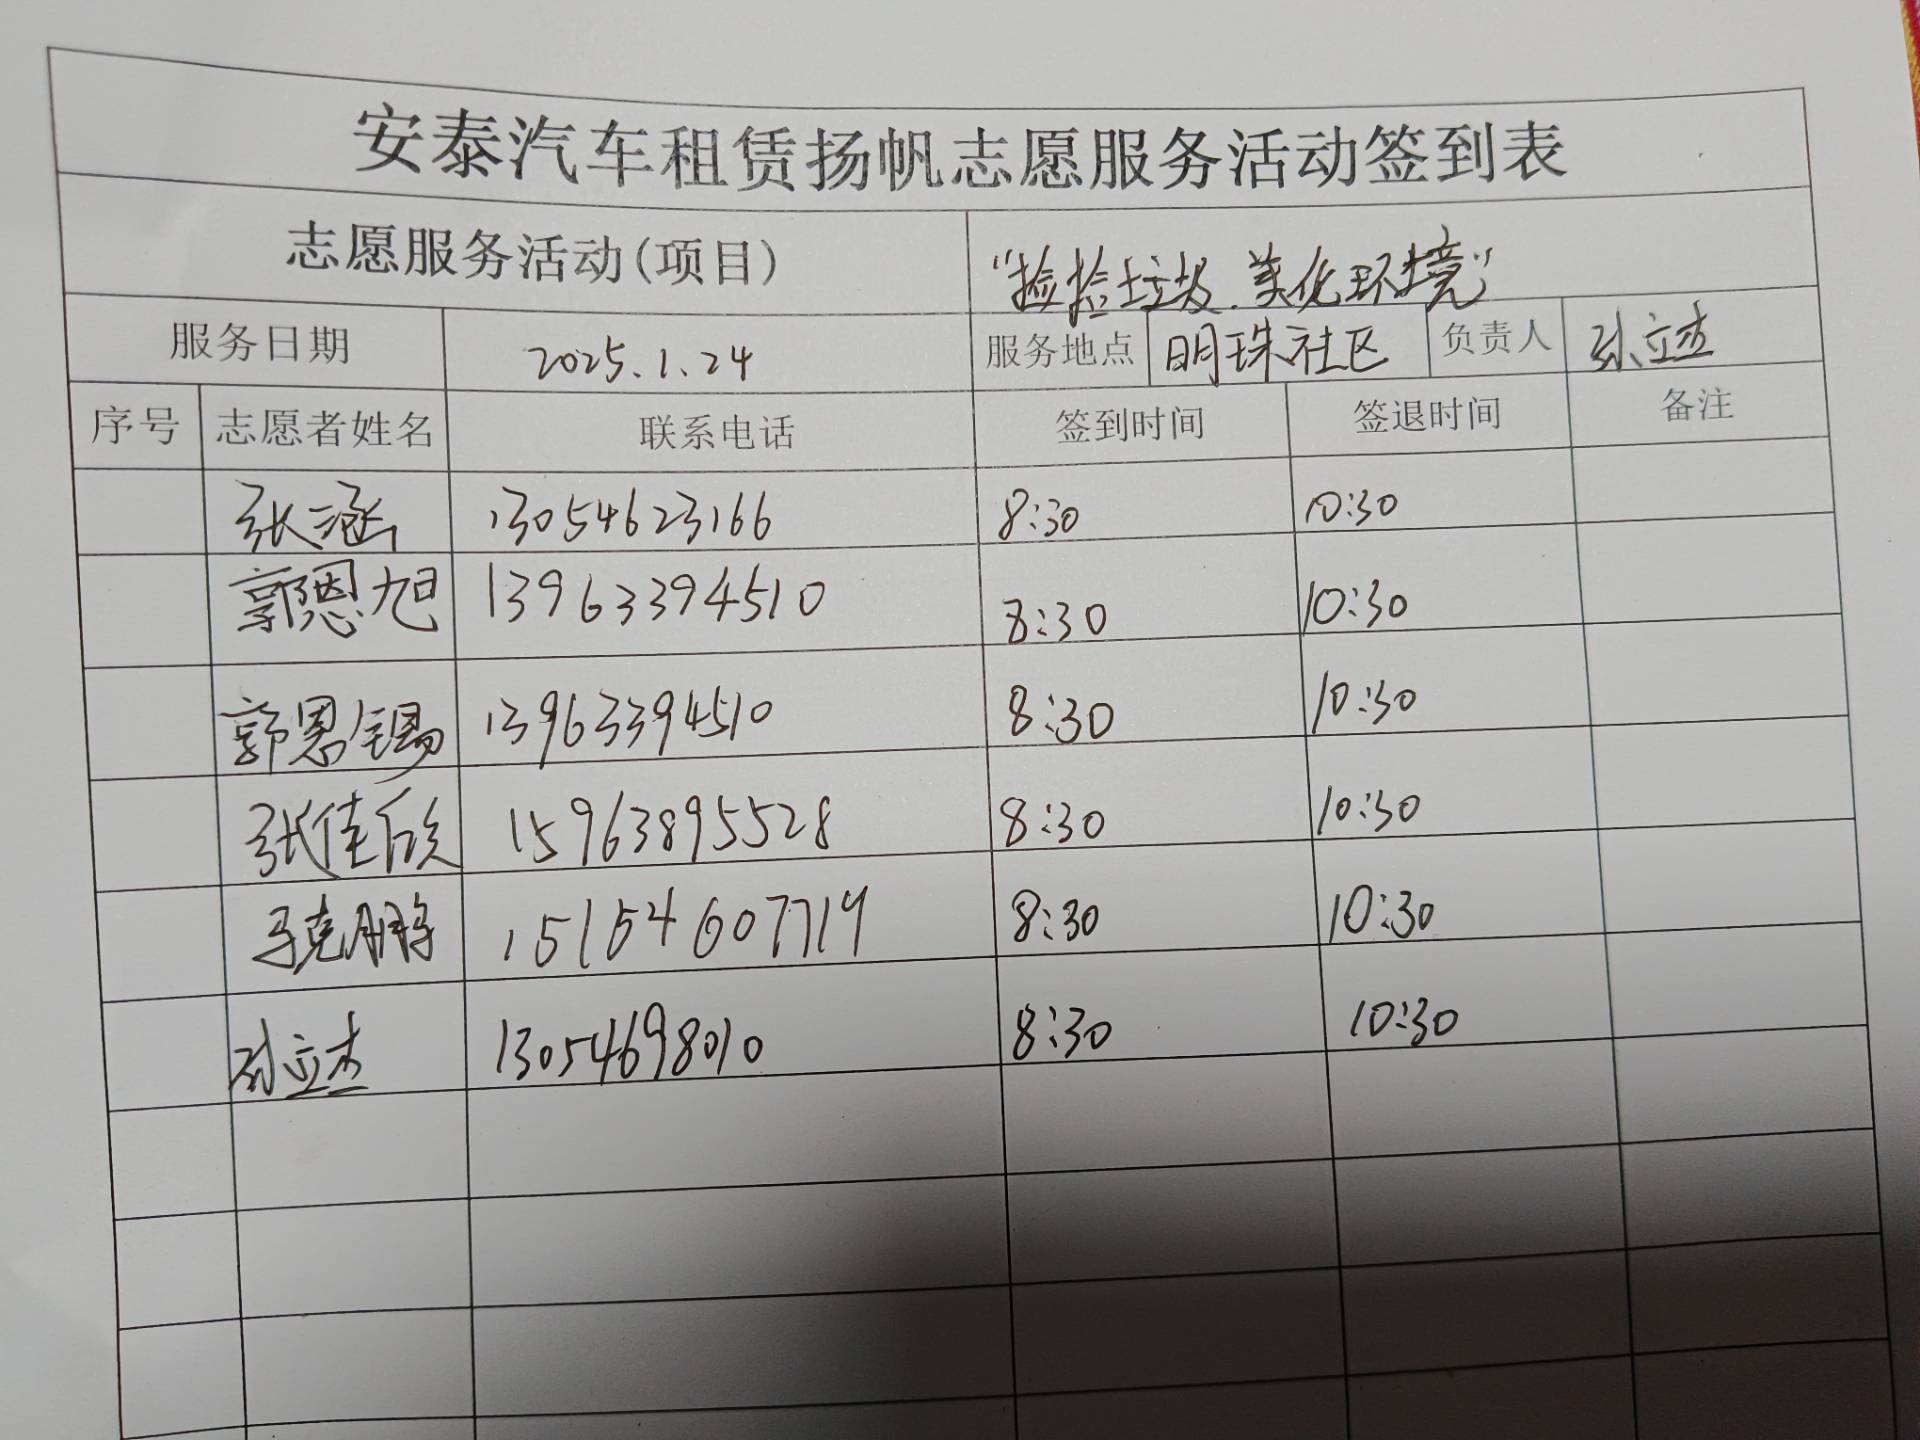 安泰汽车租赁扬帆志愿服务活动签到表
志愿服务活动(项目) “捡捡垃圾.美化环境”
服务日期 2025.1.24 服务地点 明珠社区 负责人 孙立杰
序号 志愿者姓名 联系电话 签到时间 签退时间 备注
张涵 13054623166 8:30 10:30
郭恩旭 13963394510 8:30 10:30
郭恩锡 13963394510 8:30 10:30
张佳欣 15963895528 8:30 10:30
马克鹏 15154607719 8:30 10:30
孙立杰 13054698010 8:30 10:30